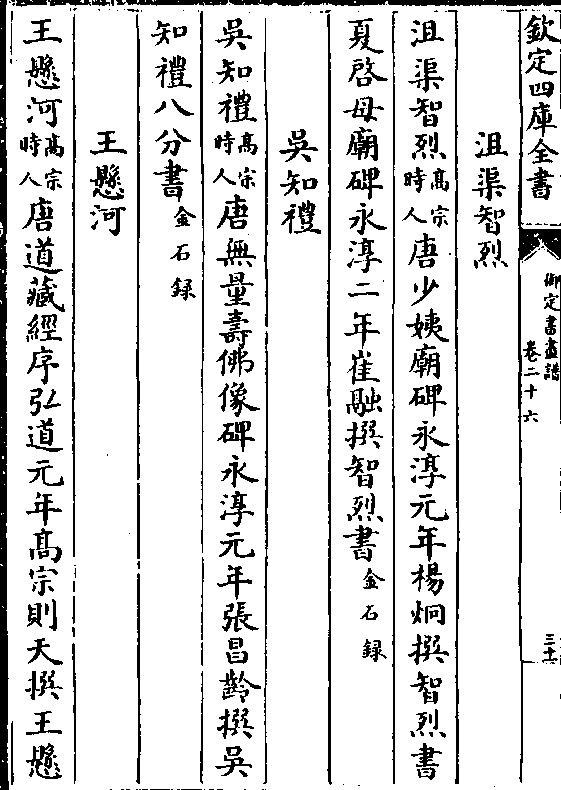 欽定四庫全書
御定書畫譜
卷二十六
三十二
沮渠智烈
沮渠智烈高宗時人唐少姨廟碑永淳元年楊炯撰智烈書
夏啓母廟碑永淳二年崔融撰智烈書金石録
吳知禮
吳知禮高宗時人唐無量壽佛像碑永淳元年張昌齡撰吳
知禮八分書金石録
王懸河
王懸河高宗時人唐道藏經序弘道元年高宗則天撰王懸